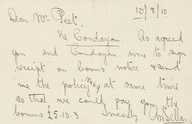 10/3/10
Dear Mr Peet.
Re Condayan. As agreed
you and Condayan were to sign
receipt on bonus notice & send
me the policy at same time
so that we could pay you the
bonus £5.10.3
Sincerely